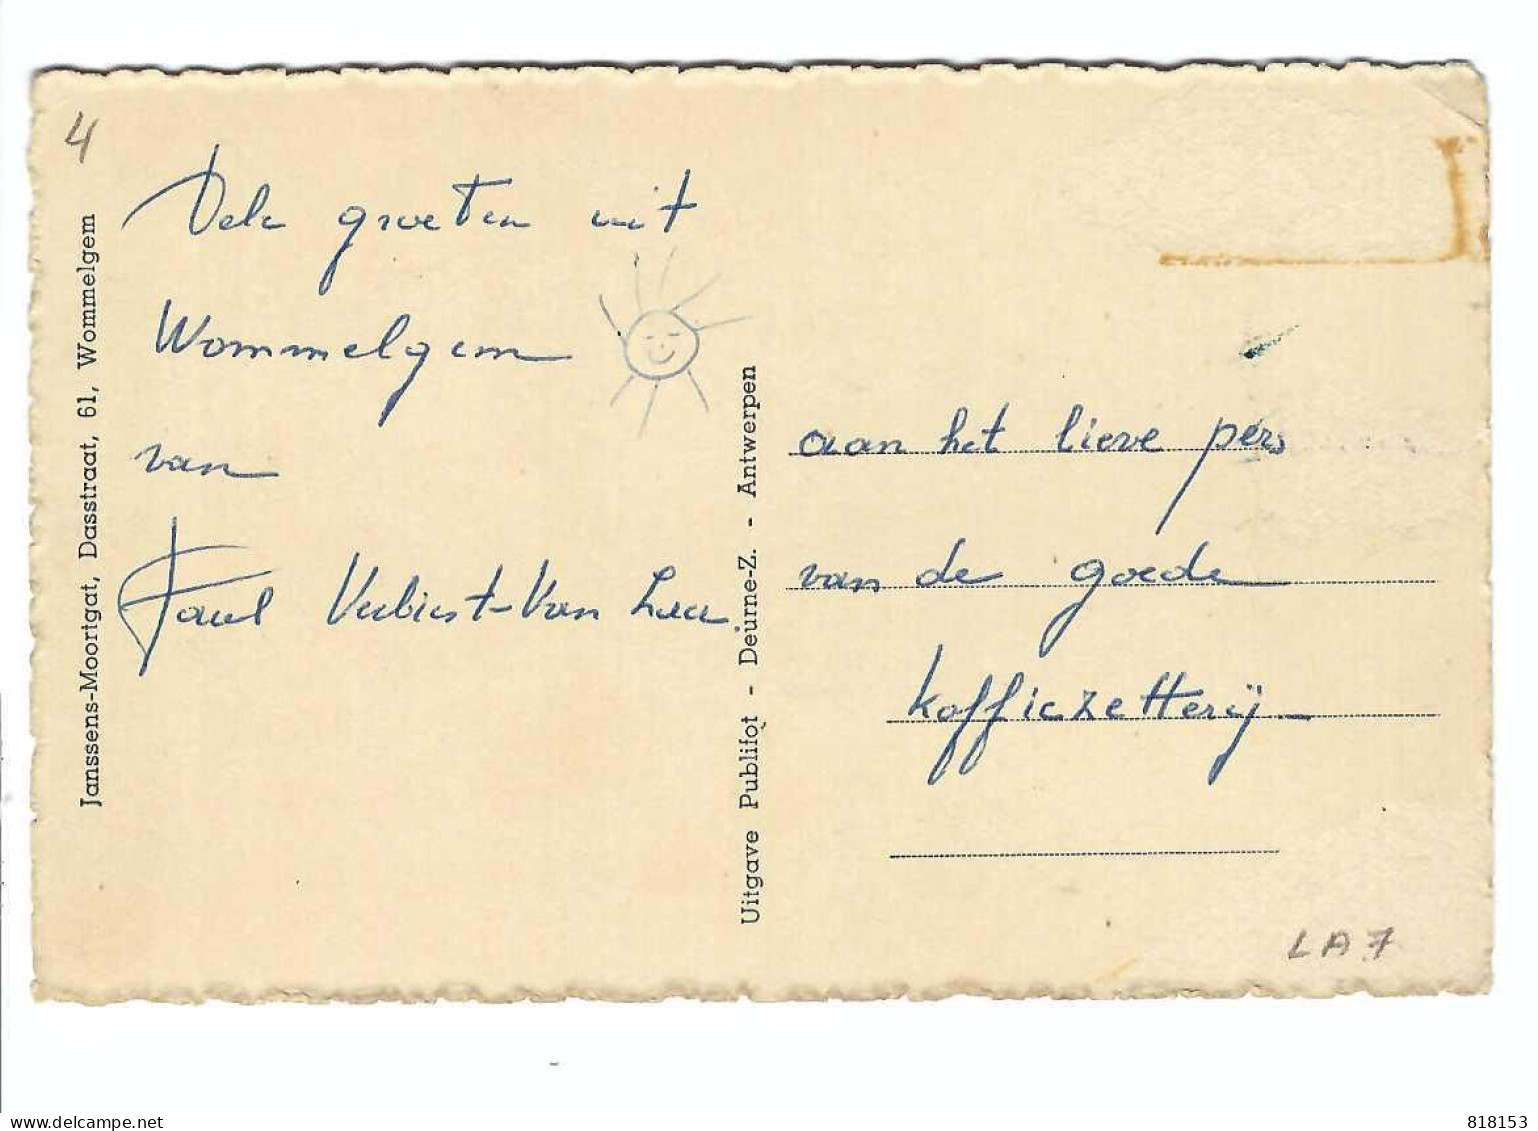 4
Janssens-Moortgat, Dasstraat, 61, Wommelgem
Vele groeten uit
Wommelgem
van
Paul Verbiest-Van
Uitgave Publifot - Deurne-Z. - Antwerpen
aan het lieve pers
van de goede
koffiezetterij
LA7
www.delcampe.net
818153